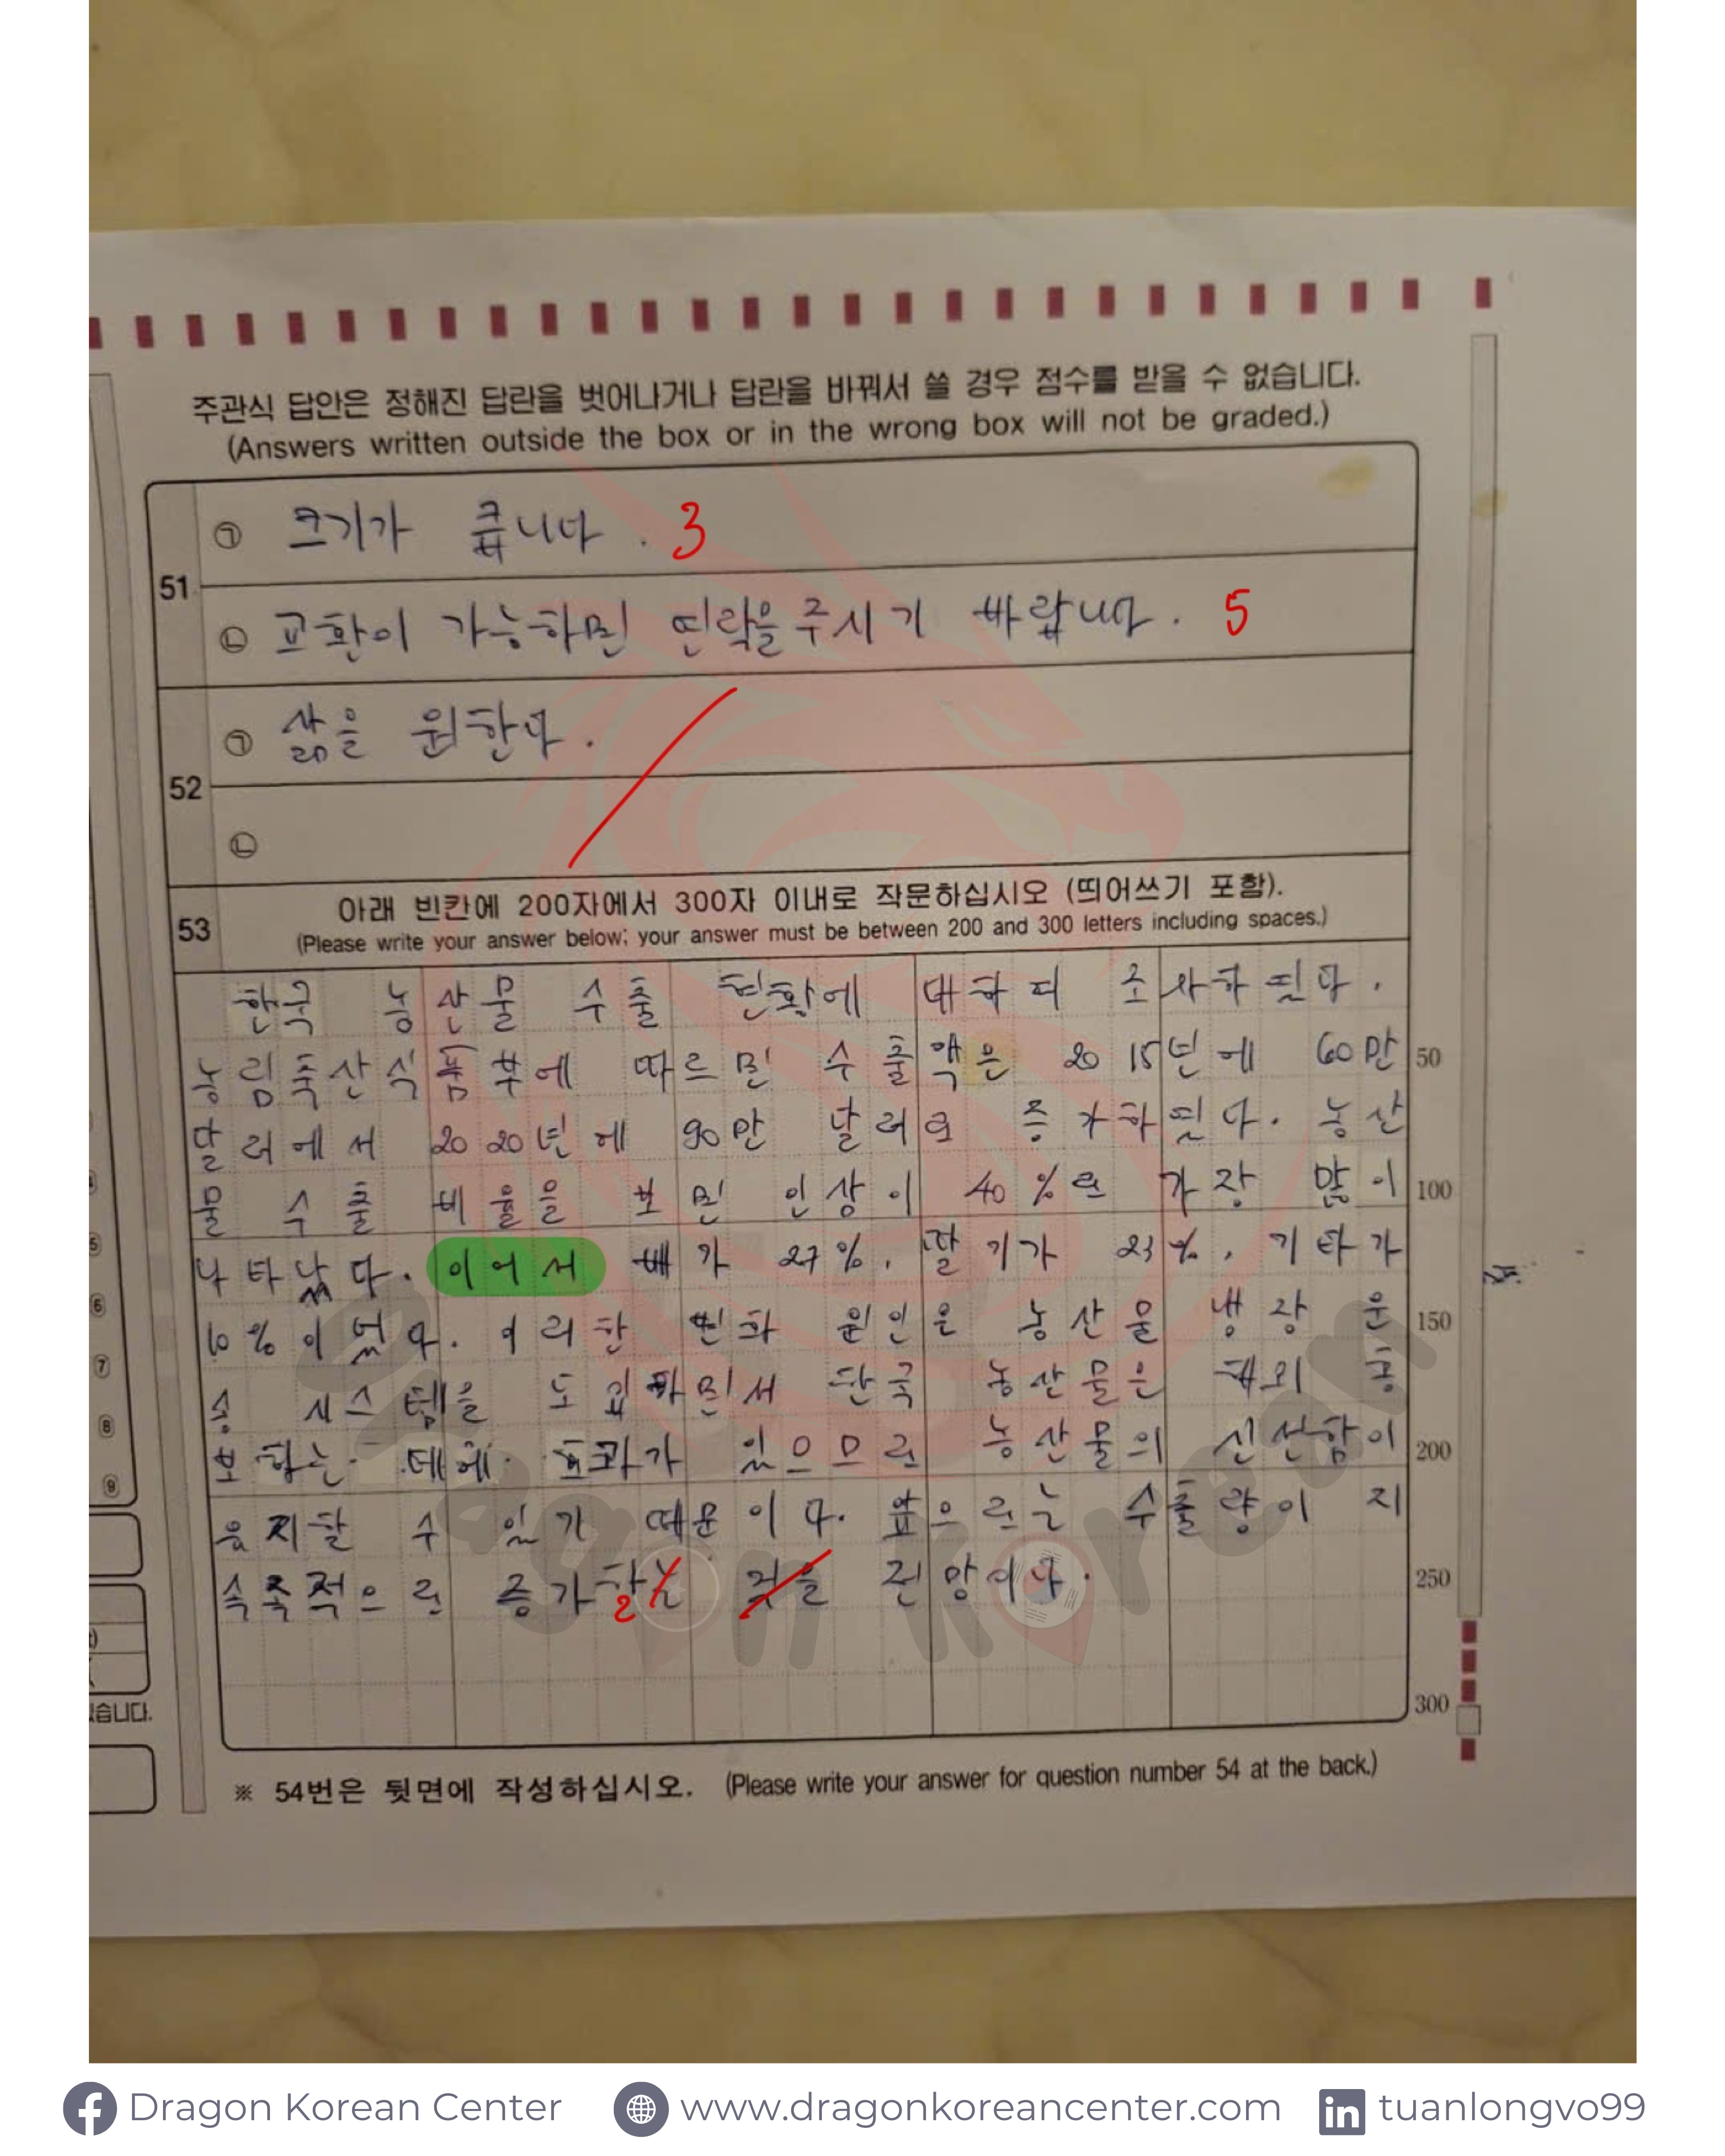 주관식 답안은 정해진 답란을 벗어나거나 답란을 바꿔서 쓸 경우 점수를 받을 수 없습니다.
(Answers written outside the box or in the wrong box will not be graded.)
51
㉠ 크기가 큽니다. 3
㉡ 교환이 가능하면 연락을 주시기 바랍니다. 5
52
㉠ 삶을 원한다.
㉡
53
아래 빈칸에 200자에서 300자 이내로 작문하십시오 (띄어쓰기 포함).
(Please write your answer below; your answer must be between 200 and 300 letters including spaces.)
한국 농산물 수출 현황에 대하며 조사하였다.
농림축산식품부에 따르면 수출액은 2015년에 60만 50
달러에서 2020년에 90만 달러로 증가하였다. 농산
물 수출 비율을 보면 인삼이 40%로 가장 많이 100
나타났다. 이어서 배가 27%, 딸기가 23%, 기타가
10%이었다. 이러한 변화 원인은 농산물 냉장 운 150
송 시스템을 도입하면서 한국 농산물은 해외 홍
보하는 데에 효과가 있으므로 농산물의 신선함이 200
유지할 수 있기 때문이다. 앞으로는 수출량이 지
속적으로 증가할 것을 전망이다. 250
300
습니다.
※ 54번은 뒷면에 작성하십시오. (Please write your answer for question number 54 at the back.)
Dragon Korean
Dragon Korean Center
www.dragonkoreancenter.com
tuanlongvo99